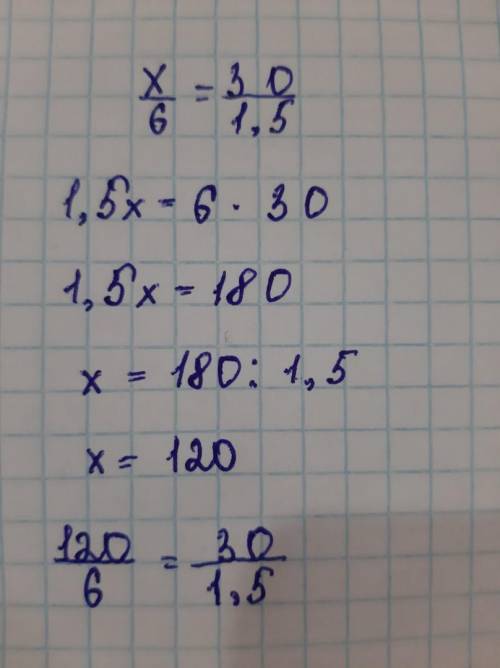 x/6 = 30/1,5
1,5x = 6 · 30
1,5x = 180
x = 180 : 1,5
x = 120
120/6 = 30/1,5